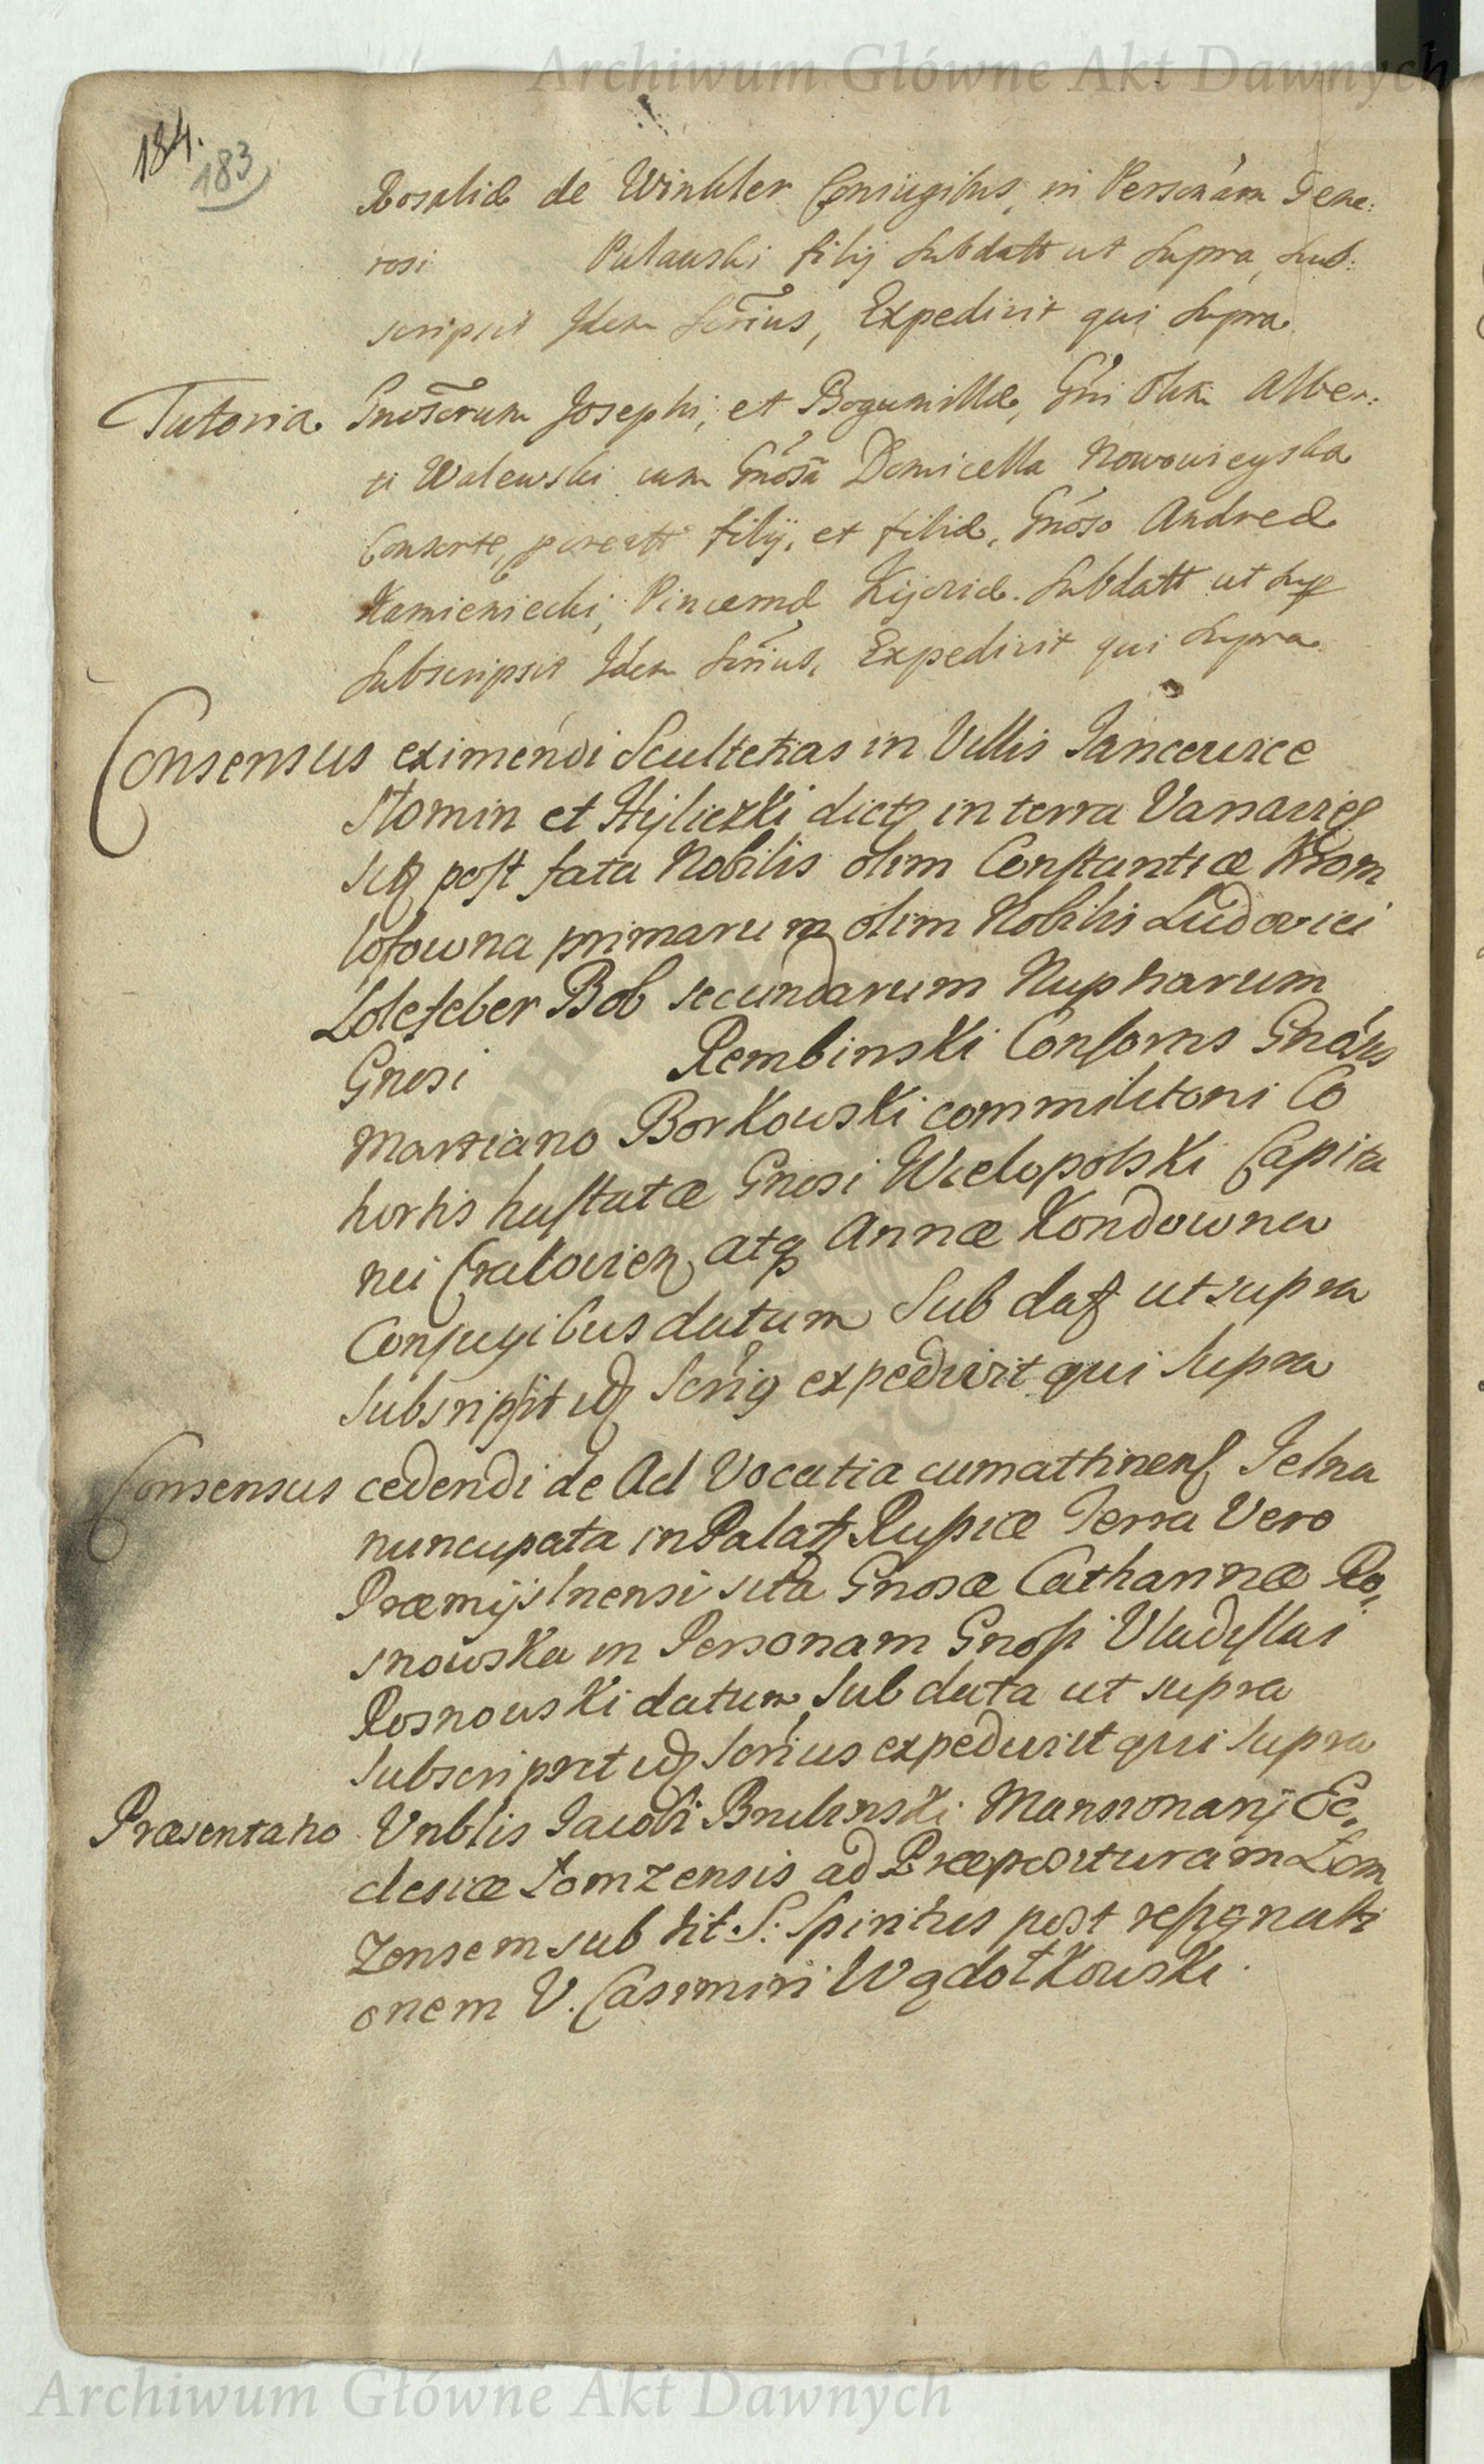 Archiwum Główne Akt Dawnych
184.
183
Rosaliæ de Winkler Coniugibus, in Personam Gene:
rosi Pulawski filij Subdatt ut Supra, Sub:
scripsit Idem Sērius, Expedivit qui Supra.
Tutoria. Gnosorum Josephi, et Bogumillæ, Gni Olim Alber:
ti Walewski cum Gnosa Domicella Nowowieyska
Consorte, filij, et filiæ, Gnoso Andreæ
Kamieniecki, Pincernæ Kijoviæ. Subdatt ut Sup
Subscripsit Idem Sērius, Expedivit qui Supra.
Consensus eximendi Scultetias in Villis Jancewice
Słomin et in terra Varsavieñ
sitas post fata Nobilis olim Constantiæ
primarum olim Nobilis Ludovici
Bob secundarum Nuptiarum
Gnosi Rembinski Consortis Gnosis
Martiano Borkowski commilitoni Co
hortis hastatæ Gnosi Wielopolski Capita
nei Cracovien atq Annæ Kondowna
Conjugibus datum Sub dat ut supra
Subscripsit id Serig expedivit qui Supra
Consensus cedendi de Ad Vocatia cum attinen Jelna
nuncupata in Palatt Rusiæ Terra Vero
Præmijslnensi sita Gnosæ Catharinæ Ro,
snowska in Personam Gnosi Vladislai
Rosnowski datum, Sub data ut supra
Subscripsit id Serius expedivit qui Supra
Præsentatio Vnblis Jacobi Mansionarij Ec,
clesiæ Łomzensis ad Præposituram Łom
zensem sub tit. S: Spiritus post resignati
onem V. Casimiri Wądołkowski.
Archiwum Główne Akt Dawnych